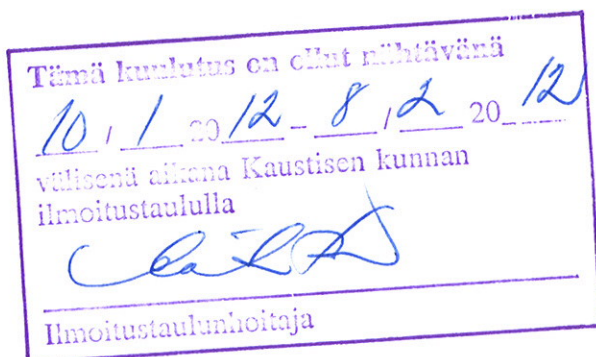 Tämä kuulutus on ollut nähtävänä
10 / 1 2012 - 8 / 2 2012
välisenä aikana Kaustisen kunnan
ilmoitustaululla
Ilmoitustaulunhoitaja